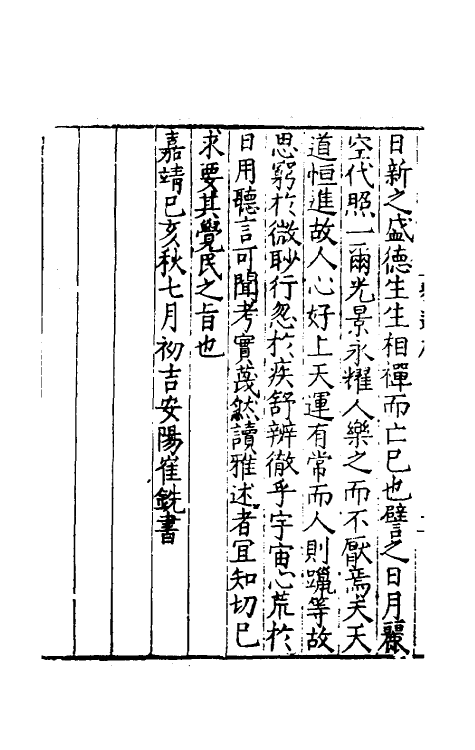 日新之盛德生生相禪而亡已也譬之日月麗
空代照一爾光景永耀人樂之而不厭焉夫天
道恒進故人心好上天運有常而人則躐等故
思窮於微眇行忽於疾舒辨徹乎宇宙心荒於
日用聽言可聞考實蔑然讀雅述者宜知切己
求要其覺民之旨也
嘉靖己亥秋七月初吉安陽崔銑書